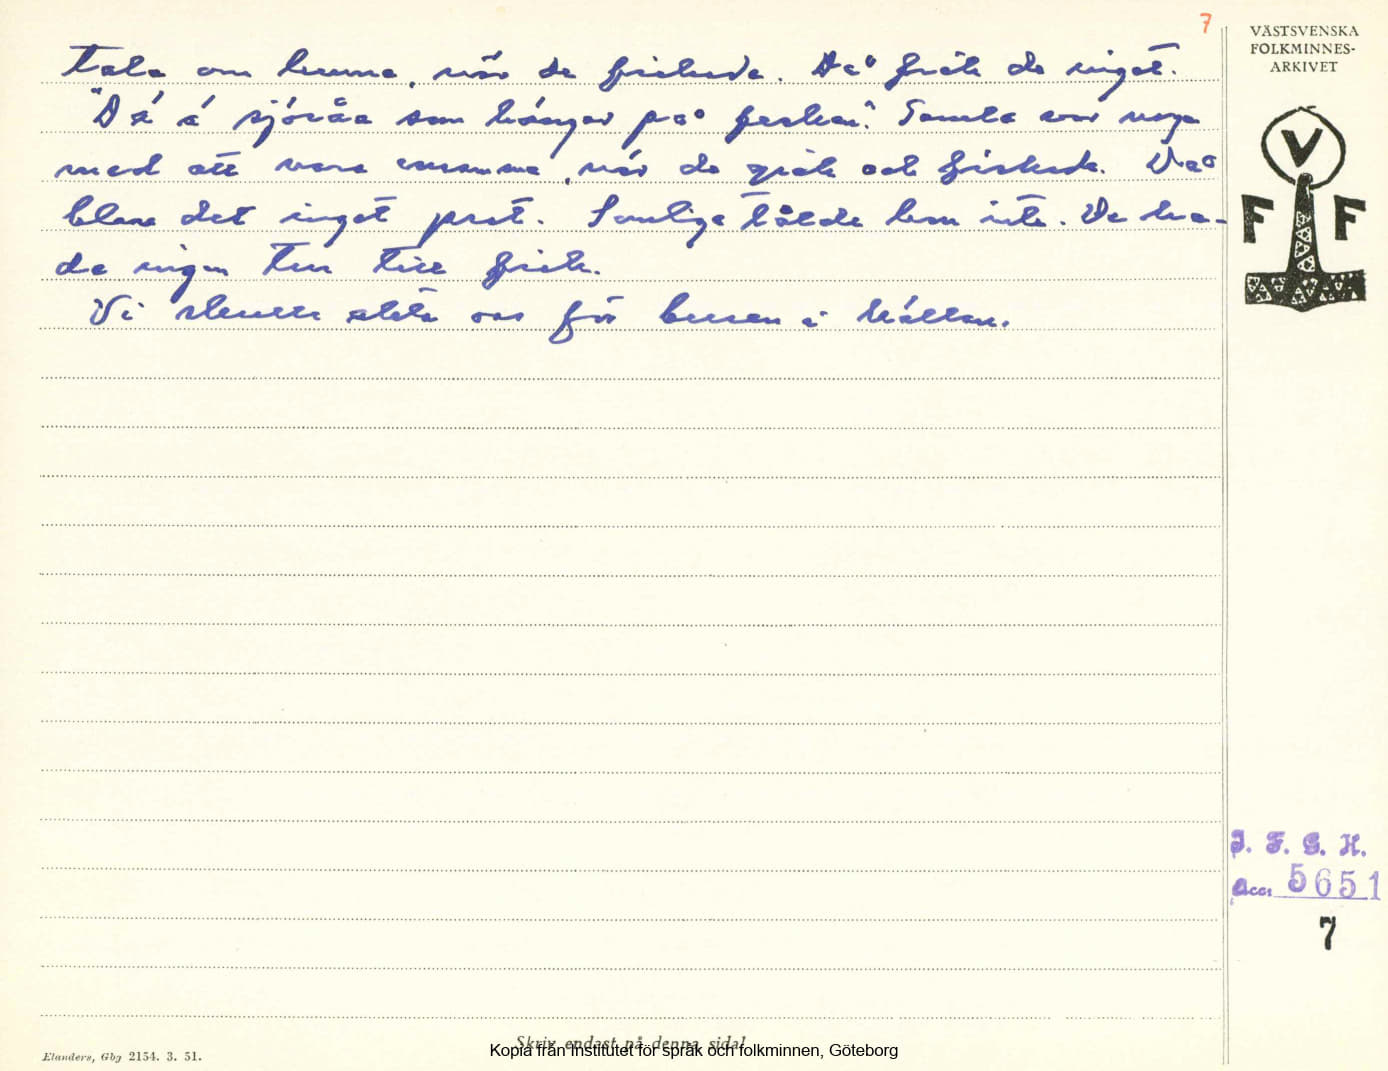 7
VÄSTSVENSKA
FOLKMINNES-
ARKIVET
tala om henne, när de fiskade. Då fick de inget.
"Dä ä sjöråa som hänger på fesken". Somla var noga
med att vara ensamma, när de gick och fiskade. Va
blev det inget prat. Somliga tålde hon inte. De ha-
de ingen tur till fisk.
Vi skulle akta oss för busen i källan.
V
F F
I. F. G. H.
Acc: 5651
7
Skriv endast på denna sida!
Kopia från Institutet för språk och folkminnen, Göteborg
Elanders, Gbg 2154. 3. 51.